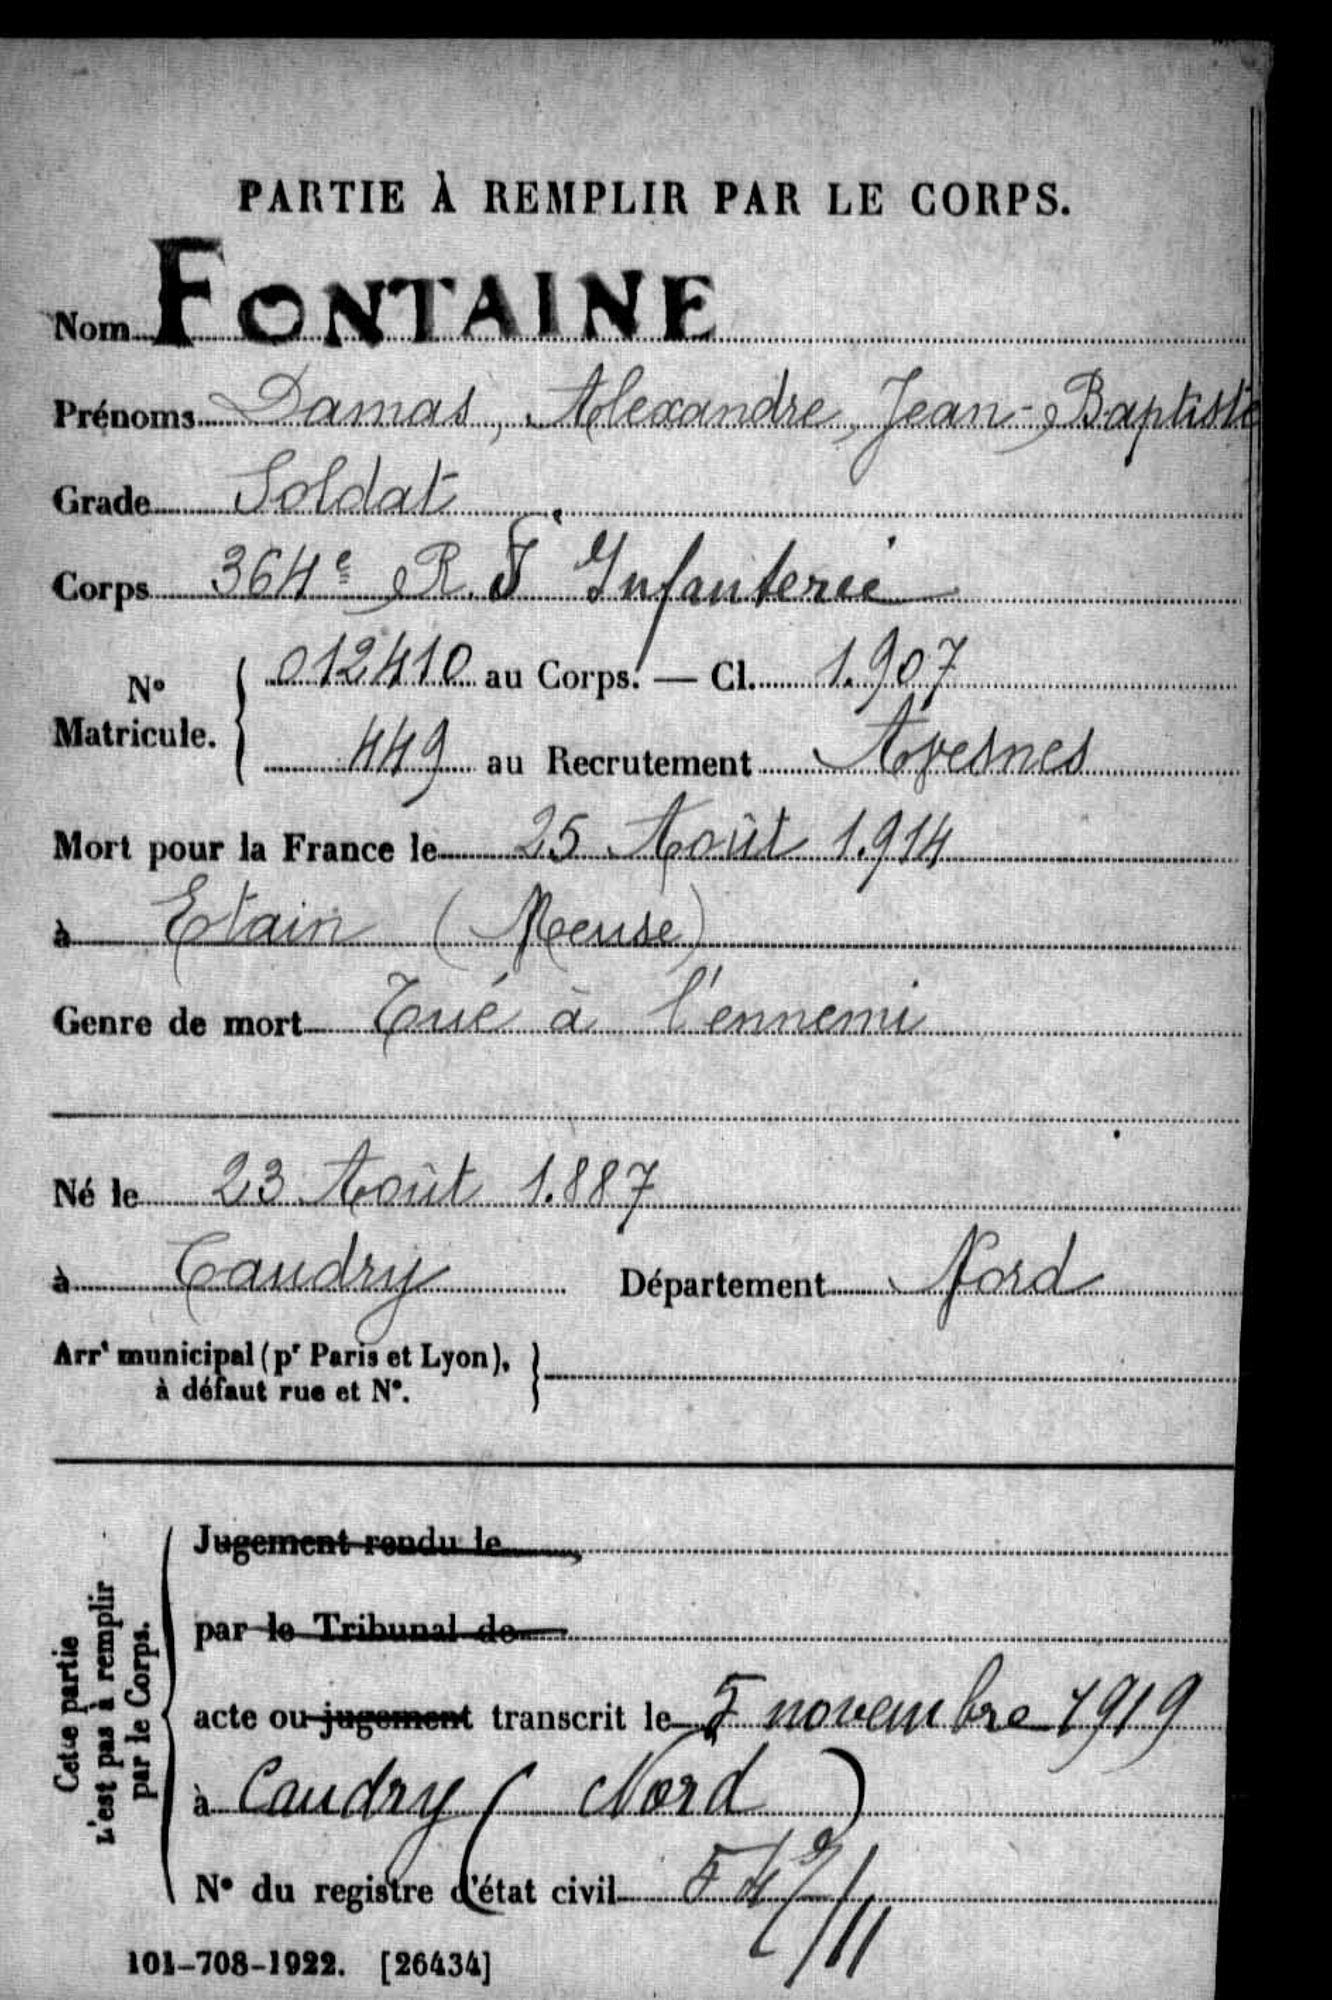 PARTIE À REMPLIR PAR LE CORPS.
Nom FONTAINE
Prénoms Damas, Alexandre, Jean-Baptiste
Grade Soldat
Corps 364e R. I Infanterie
N° Matricule. 012410 au Corps. — Cl. 1.907
449 au Recrutement Avesnes
Mort pour la France le 25 Août 1.914
à Etain (Meuse)
Genre de mort Tué à l'ennemi
Né le 23 Août 1.887
à Caudry Département Nord
Arrt municipal (pr Paris et Lyon),
à défaut rue et N°.
Cette partie
n'est pas à remplir
par le Corps.
Jugement rendu le
par le Tribunal de
acte ou jugement transcrit le 5 novembre 1919
à Caudry (Nord)
N° du registre d'état civil
101-708-1922. [26434]